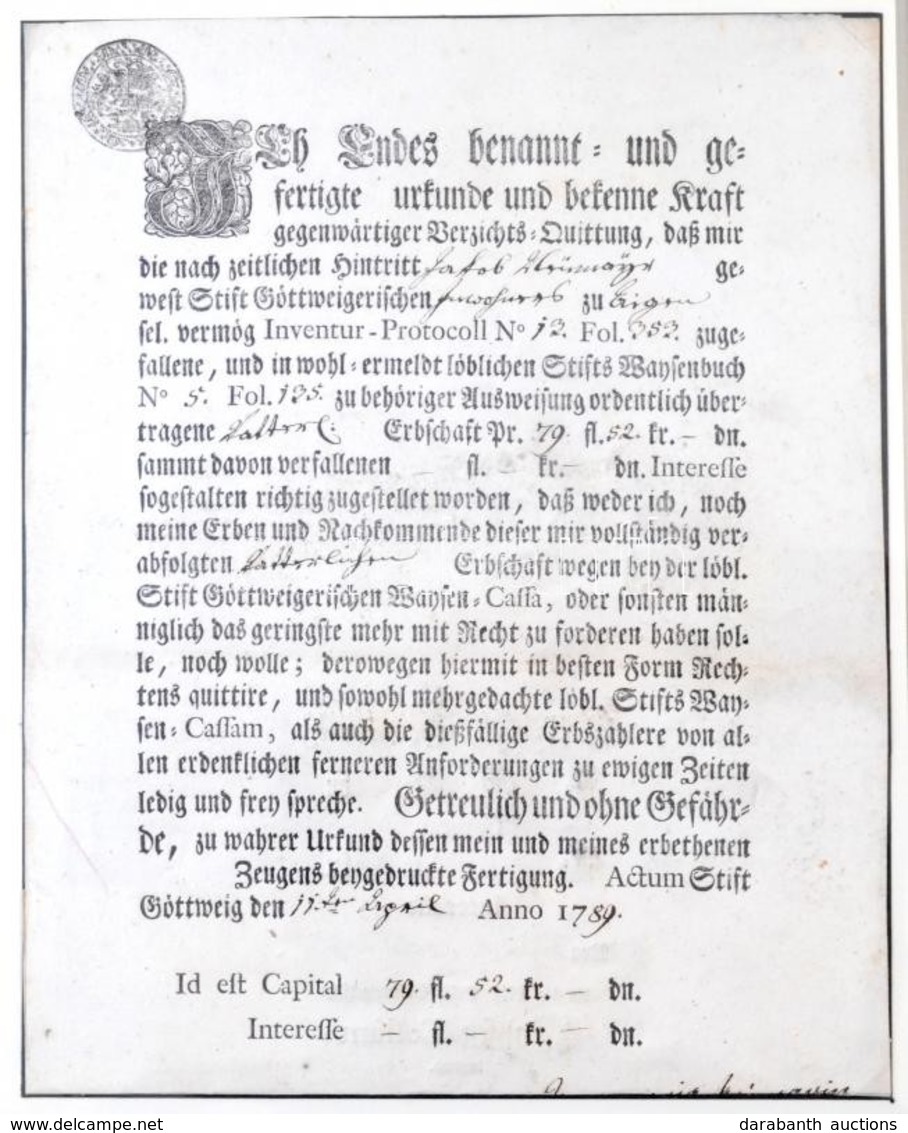 ICh Endes benannt= und ge=
fertigte urkunde und bekenne Kraft
gegenwärtiger Verzichts=Quittung, daß mir
die nach zeitlichen Hintritt Jakob Neumayr ge=
west Stift Göttweigerischen Inwohners zu Aigen
sel. vermög Inventur-Protocoll N° 12. Fol. 353. zuge=
fallene, und in wohl=ermeldt löblichen Stifts Waysenbuch
N° 5. Fol. 135. zu behöriger Ausweisung ordentlich über=
tragene Vatterl: Erbschaft Pr. 79 fl. 52. kr. – dn.
sammt davon verfallenen – fl. – kr. – dn. Interesse
sogestalten richtig zugestellet worden, daß weder ich, noch
meine Erben und Nachkommende dieser mir vollständig ver=
abfolgten Vatterlichen Erbschaft wegen bey der löbl.
Stift Göttweigerischen Waysen=Cassa, oder sonsten män=
niglich das geringste mehr mit Recht zu forderen haben sol=
le, noch wolle; derowegen hiermit in besten Form Rech=
tens quittire, und sowohl mehrgedachte löbl. Stifts Way=
sen=Cassam, als auch die dießfällige Erbszahlere von al=
len erdenklichen ferneren Anforderungen zu ewigen Zeiten
ledig und frey spreche. Getreulich und ohne Gefähr=
de, zu wahrer Urkund dessen mein und meines erbethenen
Zeugens beygedruckte Fertigung. Actum Stift
Göttweig den April Anno 1789.
Id est Capital 79. fl. 52. kr. – dn.
Interesse – fl. – kr. – dn.
darabanth auctions